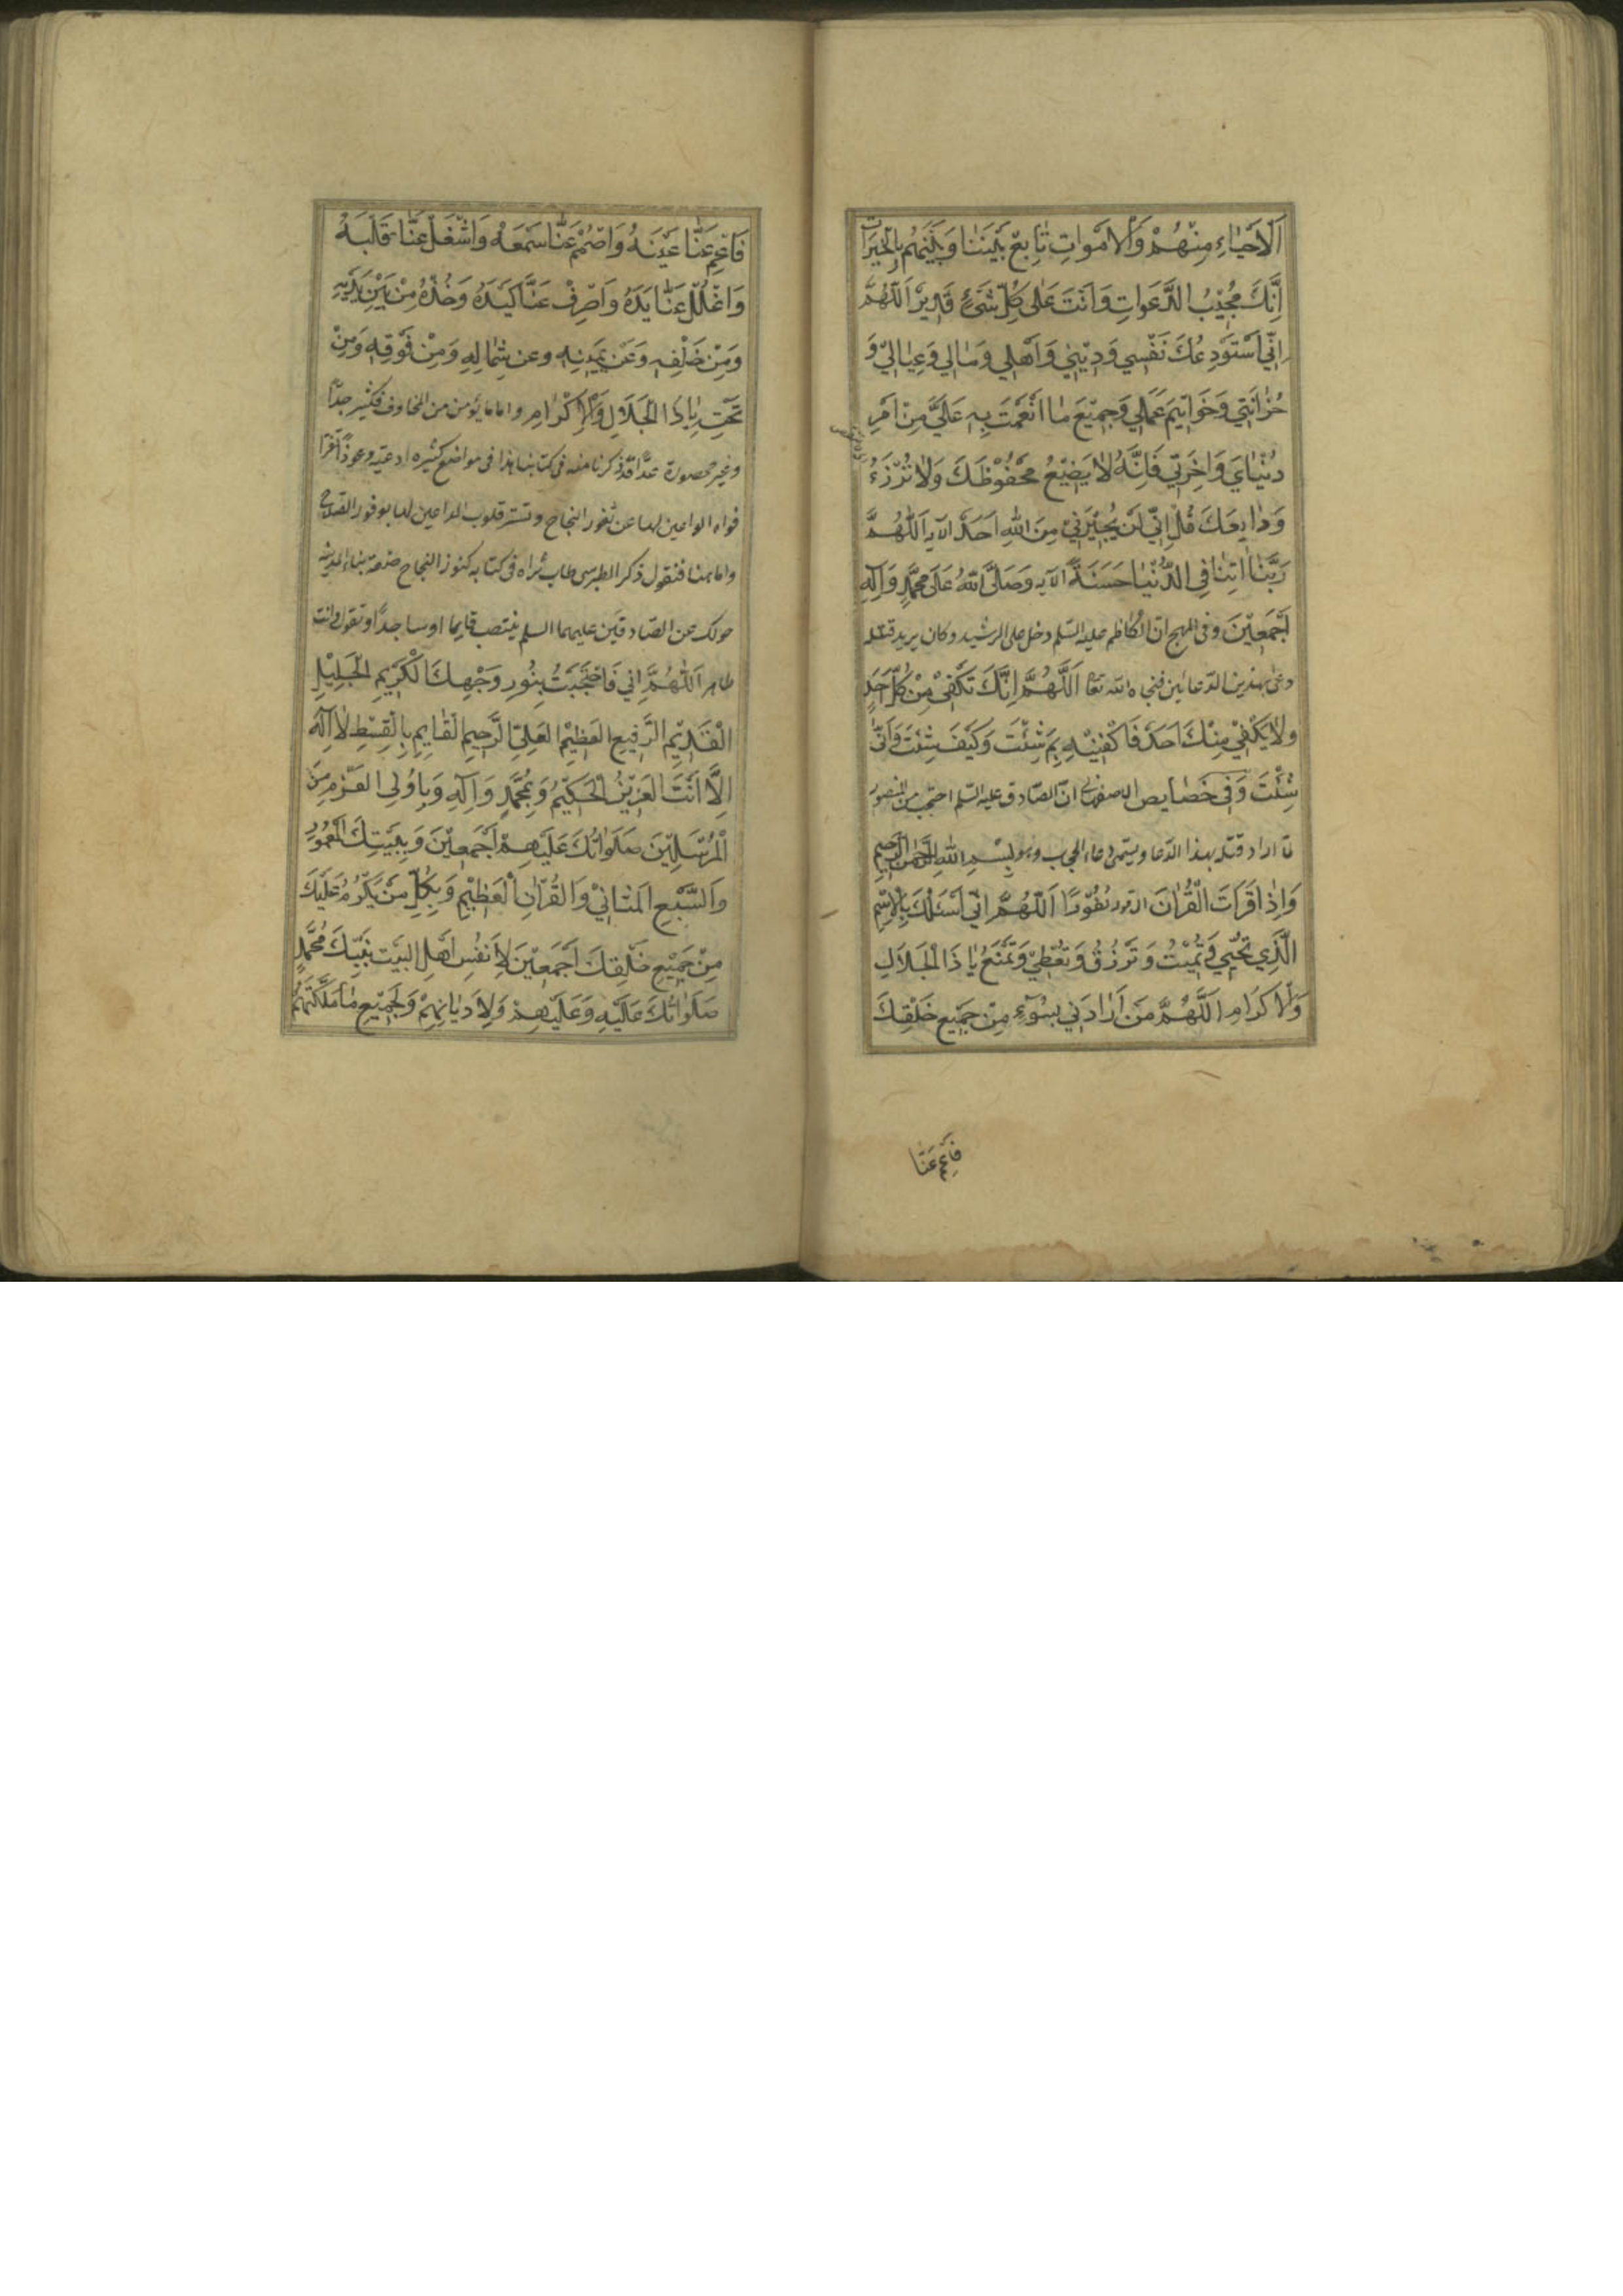 اَلْاَحْيَاءِ مِنْهُمْ وَالْاَمْوَاتِ تَابِعْ بَيْنَنَا وَبَيْنَهُمْ بِالْخَيْرَاتِ
اِنَّكَ مُجِيْبُ الدَّعَوَاتِ وَاَنْتَ عَلٰى كُلِّ شَىْءٍ قَدِيرٌ اَللّٰهُمَّ
اِنِّي اَسْتَوْدِعُكَ نَفْسِي وَدِيْنِي وَاَهْلِي وَمَالِي وَعِيَالِي وَ
حُزَانَتِي وَخَوَاتِيمَ عَمَلِي وَجَمِيْعَ مَا اَنْعَمْتَ بِهِ عَلَيَّ مِنْ اَمْرِ
دُنْيَايَ وَاٰخِرَتِي فَاِنَّهُ لَا يَضِيْعُ مَحْفُوْظُكَ وَلَا تُرْزَءُ
وَدَايِعُكَ قُلْ اِنِّي لَنْ يُجِيْرَنِيْ مِنَ اللّٰهِ اَحَدٌ الآيه اَللّٰهُمَّ
رَبَّنَا اٰتِنَا فِي الدُّنْيَا حَسَنَةً الآيه وَصَلَّى اللّٰهُ عَلٰى مُحَمَّدٍ وَاٰلِهِ
اَجْمَعِيْنَ وفى المهج انّ الكاظم عليه السّلم دخل على الرشيد وكان يريد قتله
دعى بهذين الدّعائين فنجاه الله تعا اَللّٰهُمَّ اِنَّكَ تَكْفِيْ مِنْ كُلِّ اَحَدٍ
وَلَا يَكْفِيْ مِنْكَ اَحَدٌ فَاكْفِنِيْهِ بِمَ شِئْتَ وَكَيْفَ شِئْتَ وَاَنّٰى
شِئْتَ وَفِي خَصَايِصِ الاصفهانى انّ الصّادق عليه السّلم احتجب من المنصور
لمّا اراد قتله بهذا الدّعا ويسمّى دعاء الحجاب وهو بِسْمِ اللّٰهِ الرَّحْمٰنِ الرَّحِيمِ
وَاِذَا قَرَاْتَ الْقُرْاٰنَ الى قوله نُفُوْرًا اَللّٰهُمَّ اِنِّي اَسْئَلُكَ بِالْاِسْمِ
الَّذِي تُحْيِي وَتُمِيْتُ وَتَرْزُقُ وَتُعْطِيْ وَتَمْنَعُ يَا ذَا الْجَلَالِ
وَالْاِكْرَامِ اَللّٰهُمَّ مَنْ اَرَادَنِي بِسُوْءٍ مِنْ جَمِيْعِ خَلْقِكَ
فَاَعْمِ عَنَّا
فَاَعْمِ عَنَّا عَيْنَهُ وَاَصْمِمْ عَنَّا سَمْعَهُ وَاشْغَلْ عَنَّا قَلْبَهُ
وَاغْلُلْ عَنَّا يَدَهُ وَاصْرِفْ عَنَّا كَيْدَهُ وَخُذْهُ مِنْ بَيْنِ يَدَيْهِ
وَمِنْ خَلْفِهِ وَعَنْ يَمِيْنِهِ وعن شِمَالِهِ وَمِنْ فَوْقِهِ وَمِنْ
تَحْتِهِ يَا ذَا الْجَلَالِ وَالْاِكْرَامِ واما ما يؤمن من المخاوف فكثير جدّاً
وغير محصورة عدّاً قد ذكرنا منه فى كتابنا هذا فى مواضع كثيره ادعيّه وعوذاً
فواه الواعين لها عن ثغور النجاح وتستر قلوب الداعين لها بوفور الصلاح
واما هنا فنقول ذكر الطبرسى طاب ثراه فى كتابه كنوز النجاح
حولك عن الصّادقين عليهما السلم ينتصب قايما او ساجداً وتقول وانت
طاهر اَللّٰهُمَّ اِنِّي فَاحْتَجَبْتُ بِنُوْرِ وَجْهِكَ الْكَرِيْمِ الْجَلِيْلِ
الْقَدِيْمِ الرَّفِيْعِ الْعَظِيْمِ الْعَلِيِّ الرَّحِيمِ الْقَايِمِ بِالْقِسْطِ لَا اِلٰهَ
اِلَّا اَنْتَ الْعَزِيْزُ الْحَكِيْمُ وَبِمُحَمَّدٍ وَاٰلِهِ وَبِاُولِي الْعَزْمِ مِنَ
الْمُرْسَلِيْنَ صَلَوَاتُكَ عَلَيْهِمْ اَجْمَعِيْنَ وَبِبَيْتِكَ الْمَعْمُوْرِ
وَالسَّبْعِ الْمَثَانِيْ وَالْقُرْاٰنِ الْعَظِيْمِ وَبِكُلِّ مَنْ يَكْرُمُ عَلَيْكَ
مِنْ جَمِيْعِ خَلْقِكَ اَجْمَعِيْنَ لِاَنْفُسِ اَهْلِ الْبَيْتِ نَبِيِّكَ مُحَمَّدٍ
صَلَوَاتُكَ عَلَيْهِ وَعَلَيْهِمْ وَلِاَدْيَانِهِمْ وَلِجَمِيْعِ مَا مَلَّكْتَهُمْ